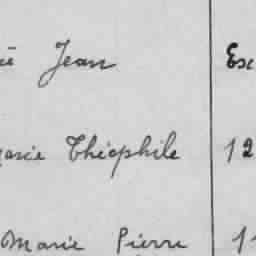 Jean Ex
Marie Théophile 12
Marie Pierre 11